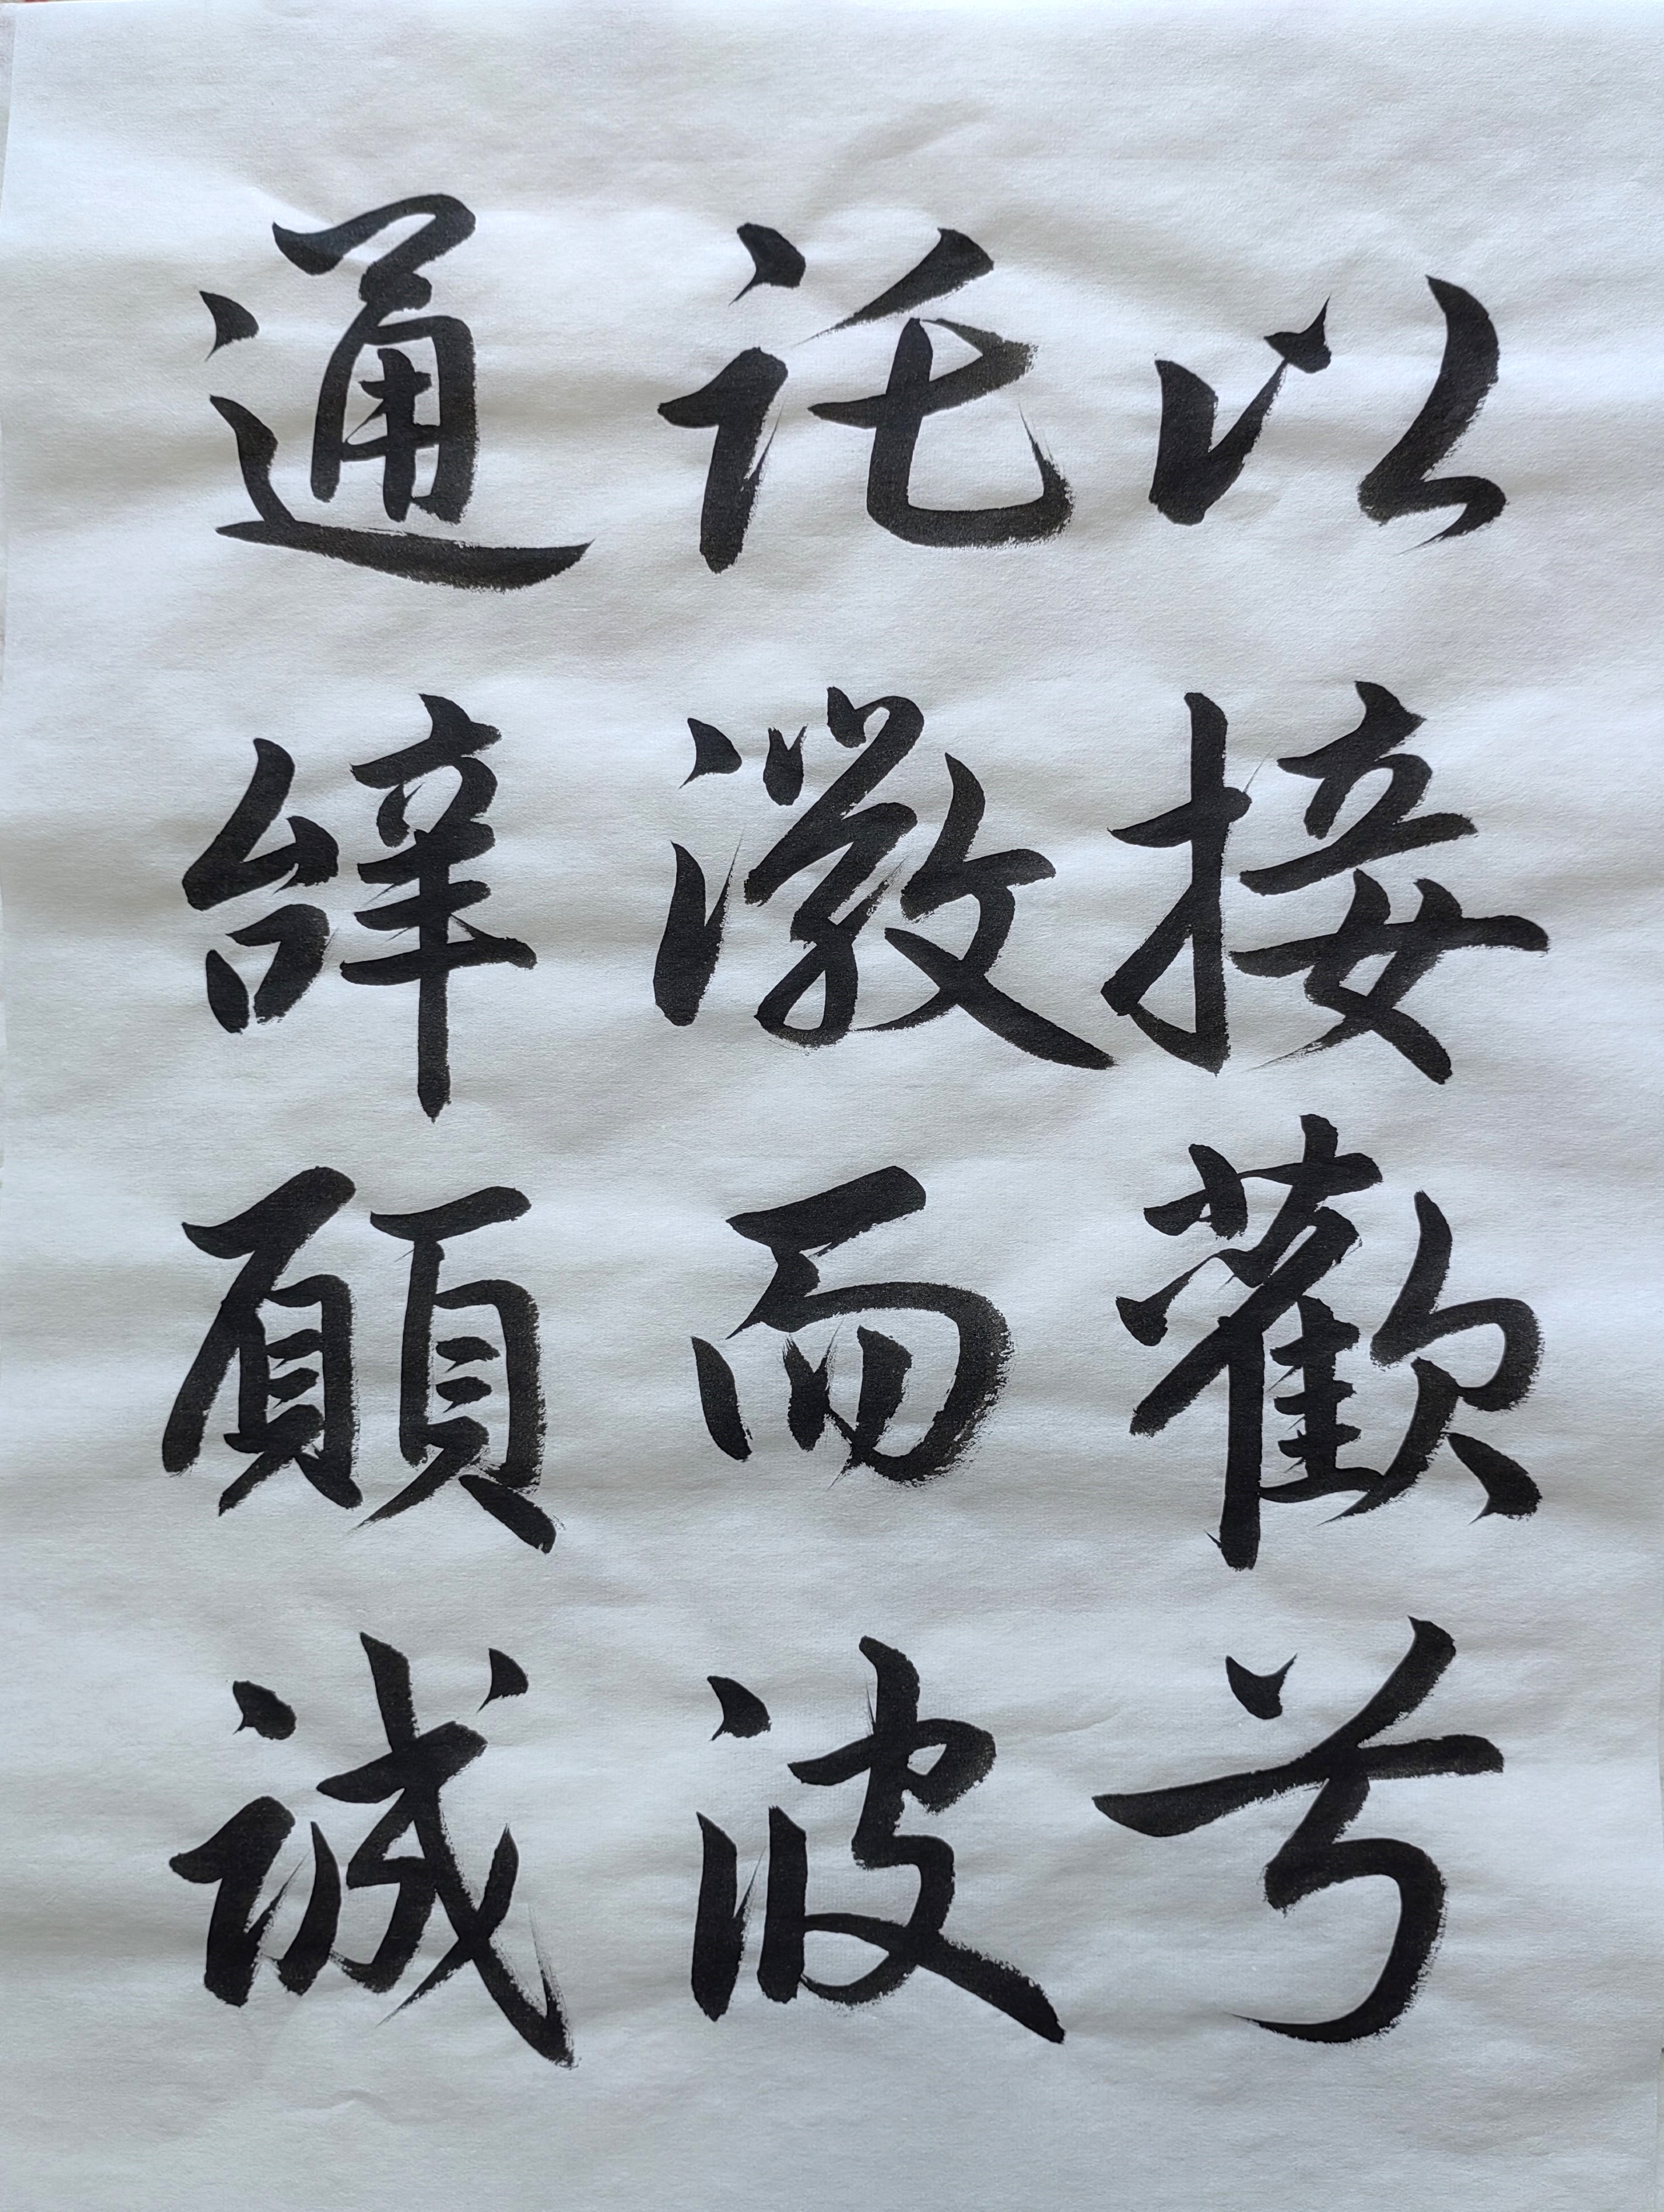 以接歡兮
託微而波
通辝願誠